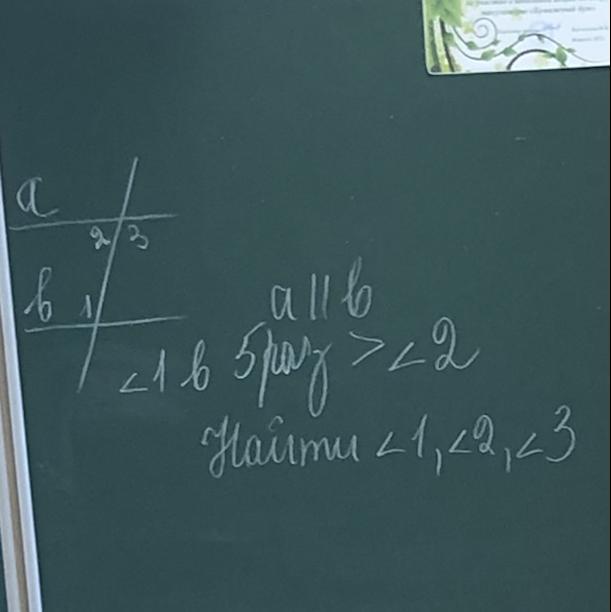 a
2 3
в 1
a || в
<1 в 5 раз > <2
Найти <1, <2, <3